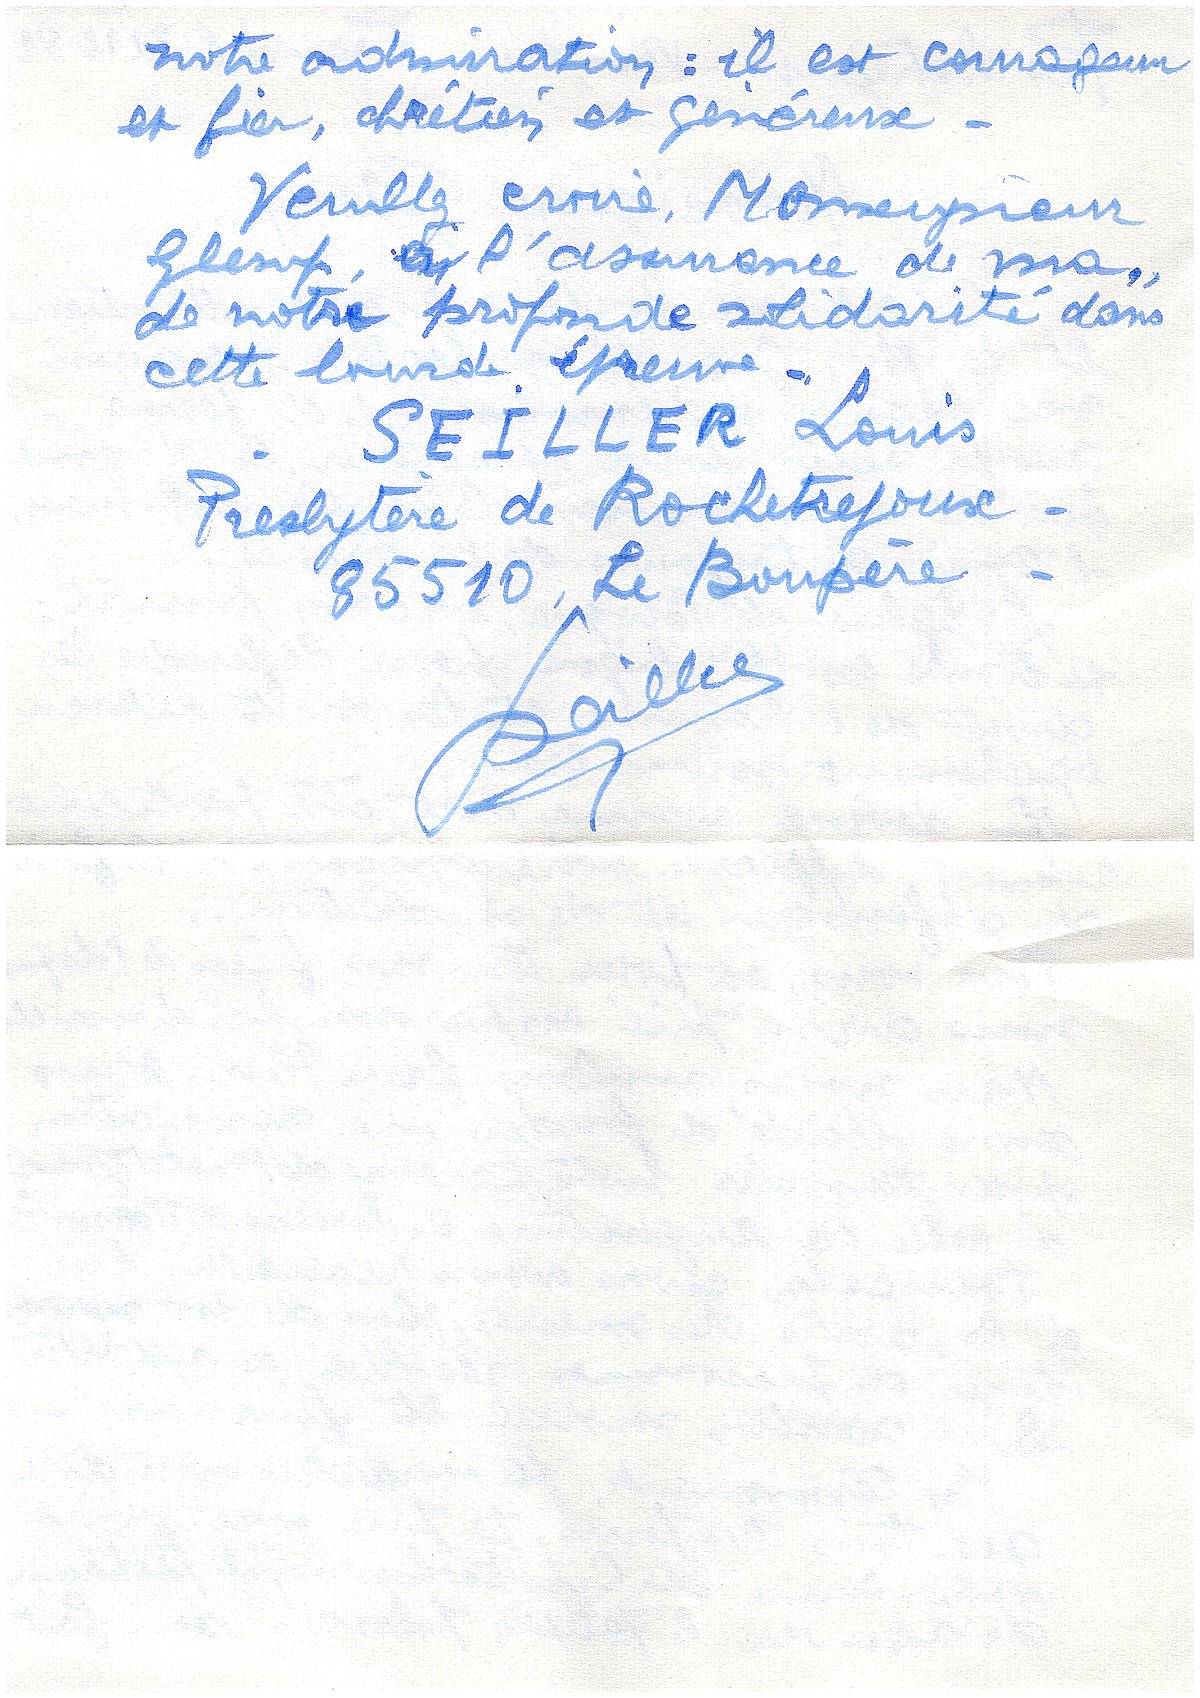 notre admiration : il est courageux
et fier, chrétien et généreux -
Veuillez croire, Monseigneur
Glemp, à l'assurance de ma,,
de notre profonde solidarité dans
cette lourde épreuve -
SEILLER Louis
Presbytère de Rochetrejoux -
85510, Le Boupère -
Seiller